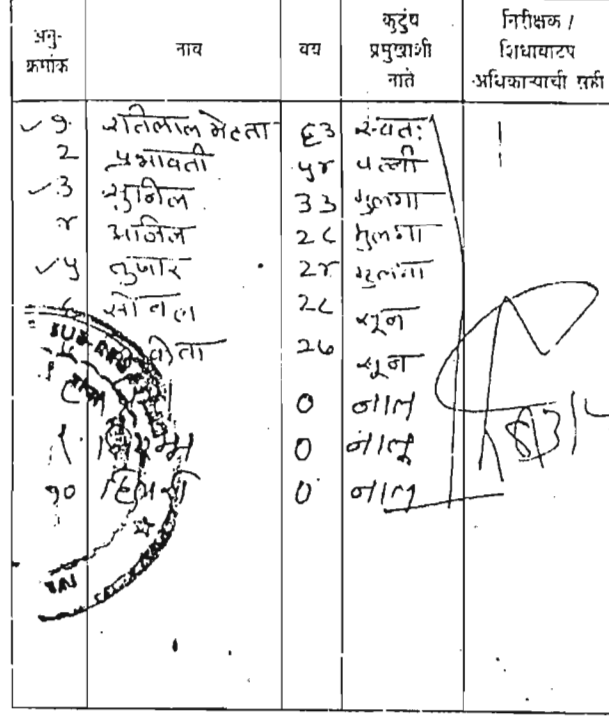 अनु-
क्रमांक
नाव
वय
कुटुंब
प्रमुखाशी
नाते
निरीक्षक /
शिधावाटप
अधिकाऱ्याची सही
१ रतिलाल मेहता ६३ स्वतः
२ प्रभावती ५४ पत्नी
३ सुनिल ३३ मुलगा
४ अनिल २८ मुलगा
५ तुषार २४ मुलगा
सोनल २८ सून
२७ सून
० नात
० नातू
१० ० नात